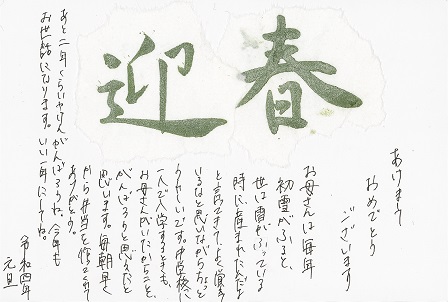 迎春
あけまして
おめでとう
ございます
お母さんは毎年
初雪がふると、
世は雪がふっている
時に産まれたんだよ
と言ってきてよく覚えて
いるなと思いながらちょっと
うれしいです。中学校に
一人で入学するときも、
お母さんがいたからこと、
がんばろうと思えたと
思います。毎朝早く
から弁当を作ってくれて
ありがとう。
あと二年くらいやけんがんばろうね。今年も
お世話になります。いい一年にしてね。
令和四年
元旦